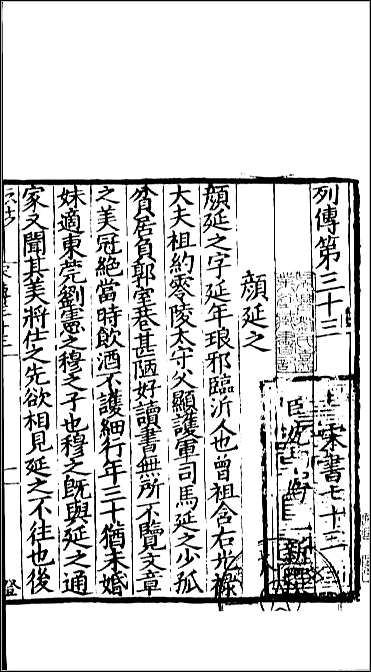 列傳第三十三　宋書七十三
臣沈約　新撰
顔延之
顔延之字延年琅邪臨沂人也曾祖含右光禄
大夫祖約零陵太守父顯護軍司馬延之少孤
貧居負郭室巷甚陋好讀書無所不覽文章
之美冠絶當時飲酒不護細行年三十猶未婚
妹適東莞劉憲之穆之子也穆之既與延之通
家又聞其美將仕之先欲相見延之不往也後